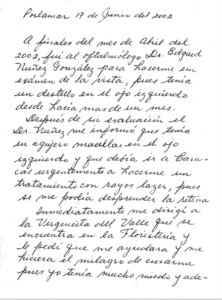 Porlamar 19 de Junio del 2002
A finales del mes de Abril del
2002, fui al oftalmólogo Dr. Edgard
Nuñez González para hacerme un
exámen de la vista, pues tenía
un destello en el ojo izquierdo
desde hacía mas de un mes.
Después de su evaluación el
Dr. Nuñez me informó que tenía
un agujero en el ojo
izquierdo y que debía ir a Cara-
cas urgentemente a hacerme un
tratamiento con rayos lazer, pues
se me podía desprender la retina
Inmediatamente me dirigí a
la Virgencita del Valle que se
encuentra en la Floristería y
le pedí que me ayudara y me
hiciera el milagro de curarme
pues yo tenía mucho miedo y ade-